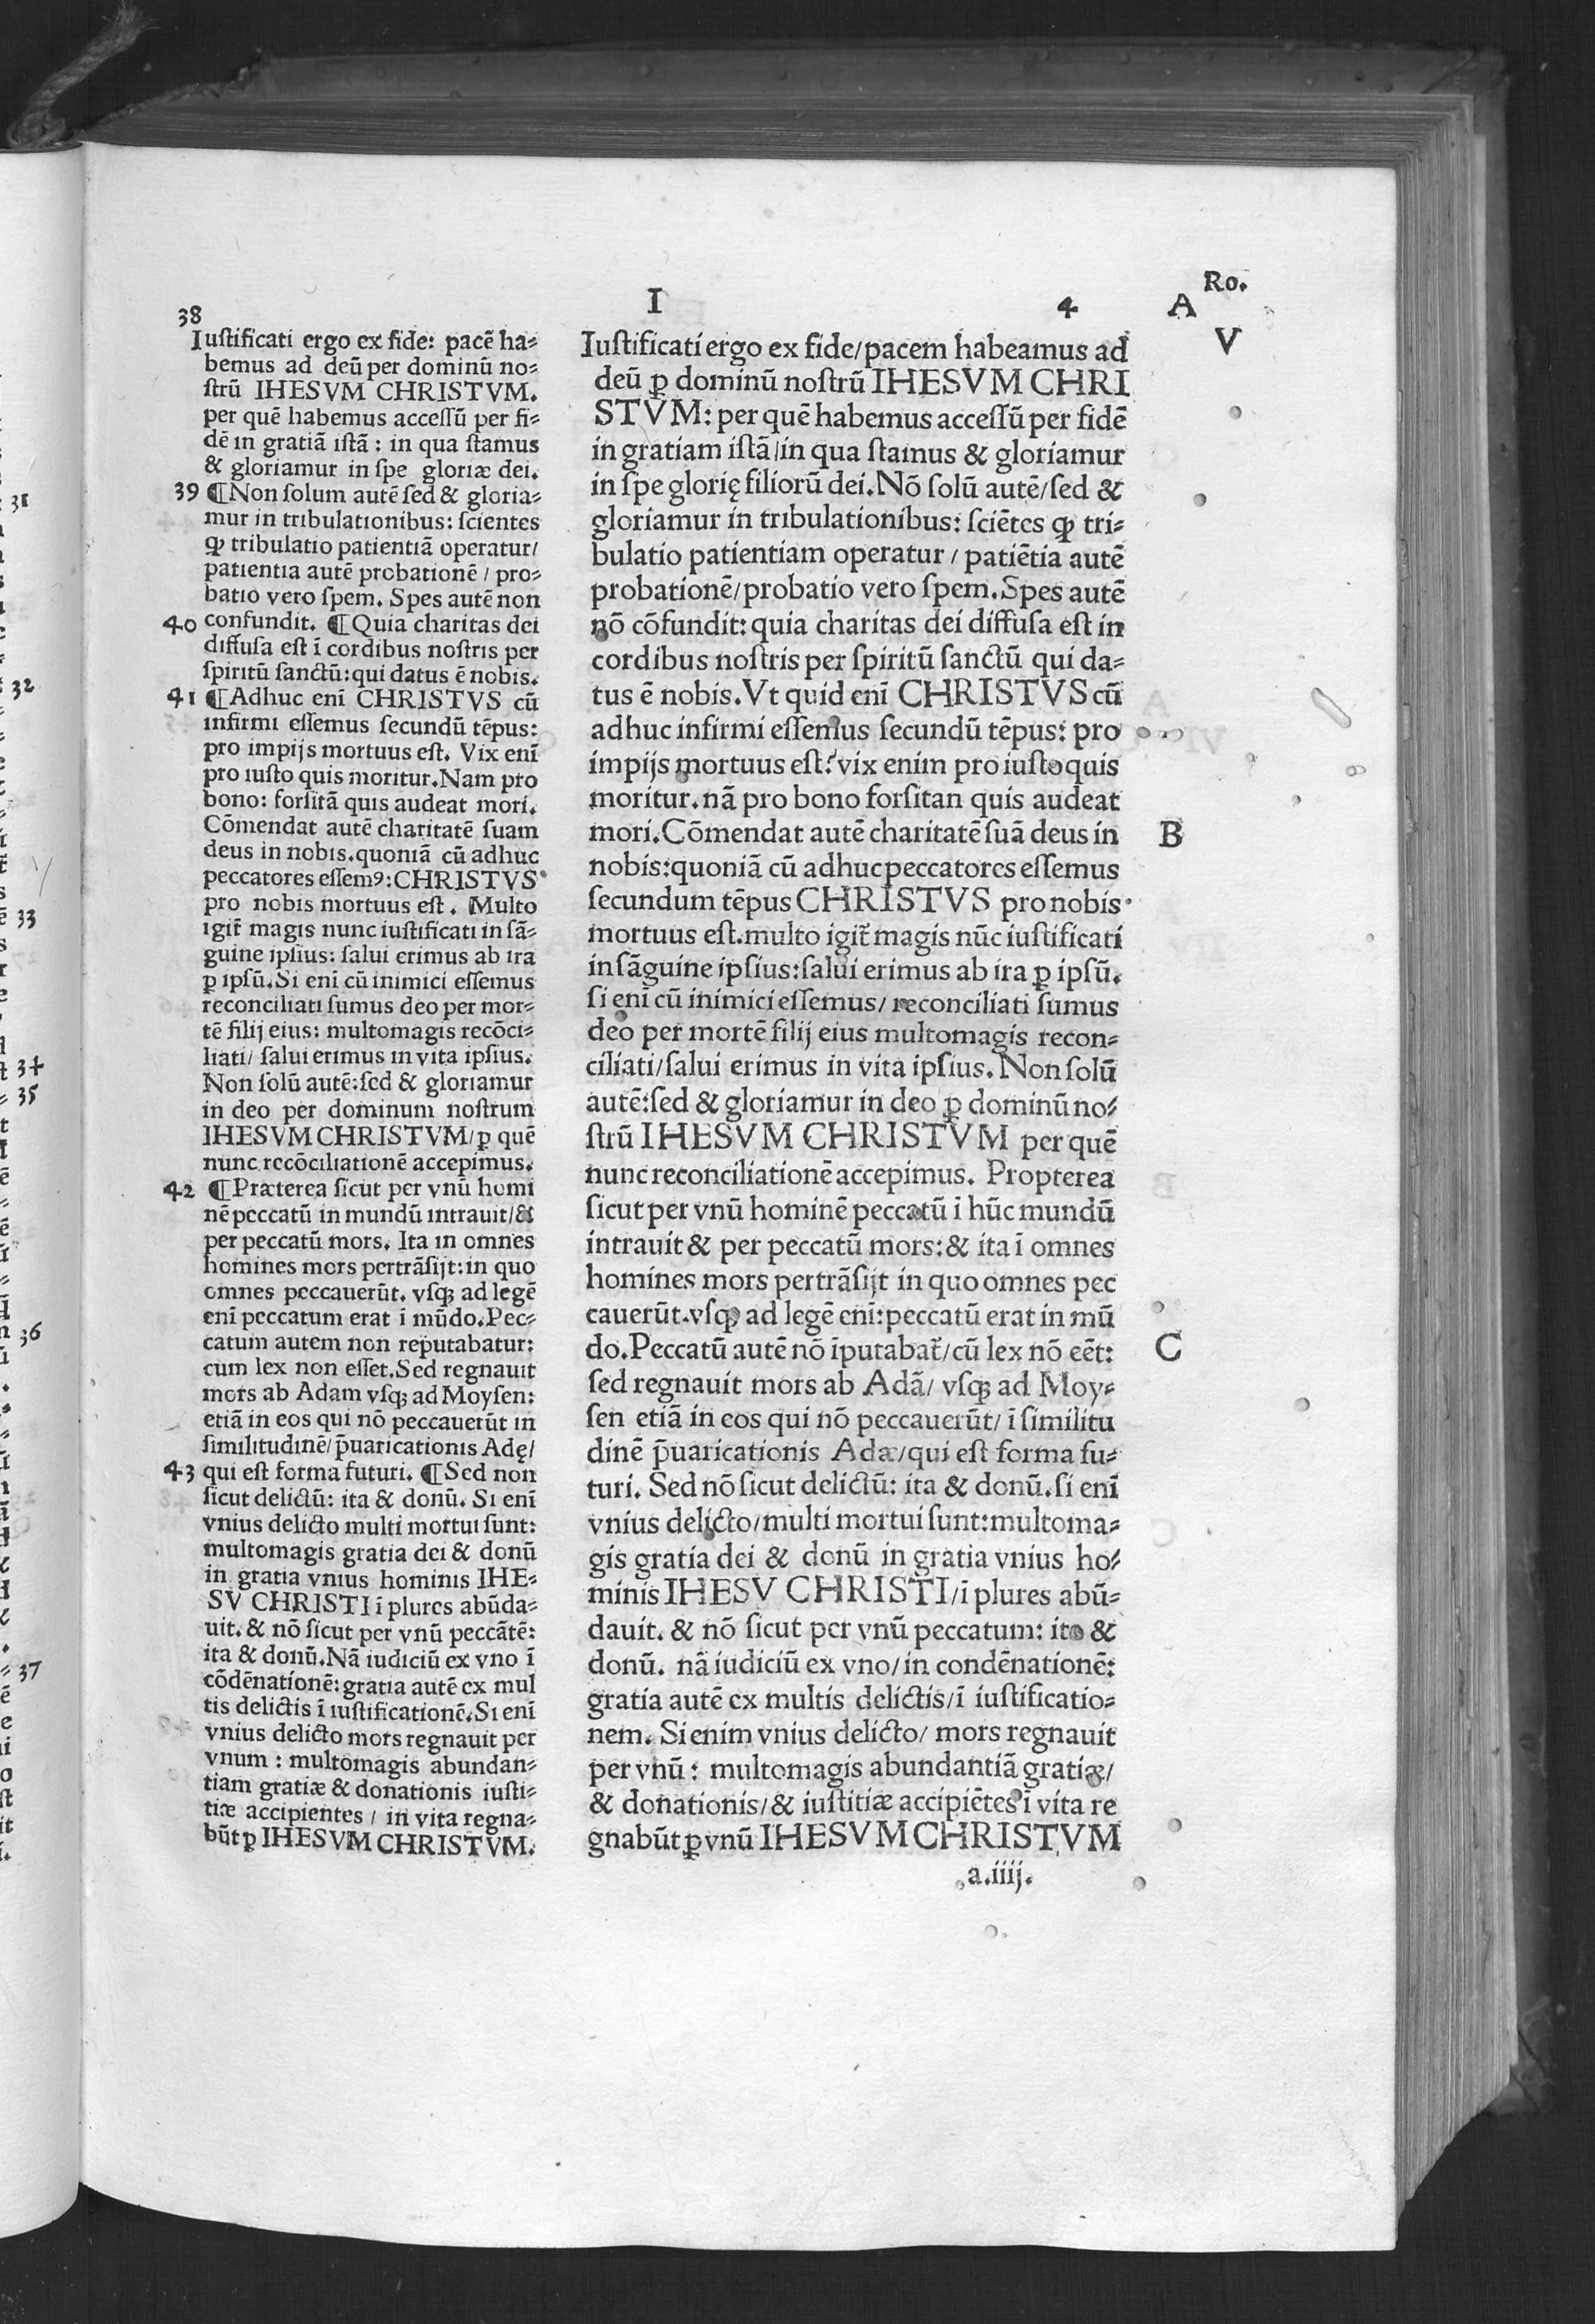 Ro.
I
4
A
V
38
Iustificati ergo ex fide: pacē ha⸗
bemus ad deū per dominū no⸗
strū IHESVM CHRISTVM.
per quē habemus accessū per fi⸗
dē in gratiā istā : in qua stamus
& gloriamur in spe gloriæ dei.
39 ¶Non solum autē sed & gloria⸗
mur in tribulationibus: scientes
ꝙ tribulatio patientiā operatur/
patientia autē probationē / pro⸗
batio vero spem. Spes autē non
40 confundit. ¶Quia charitas dei
diffusa est ī cordibus nostris per
spiritū sanctū: qui datus ē nobis.
41 ¶Adhuc enī CHRISTVS cū
infirmi essemus secundū tēpus:
pro impijs mortuus est. Vix enī
pro iusto quis moritur. Nam pro
bono: forsitā quis audeat mori.
Cōmendat autē charitatē suam
deus in nobis. quoniā cū adhuc
peccatores essemꝰ: CHRISTVS
pro nobis mortuus est. Multo
igit᷑ magis nunc iustificati in sā⸗
guine ipsius: salui erimus ab ira
ꝑ ipsū. Si enī cū inimici essemus
reconciliati sumus deo per mor⸗
tē filij eius: multomagis recōci⸗
liati/ salui erimus in vita ipsius.
Non solū autē: sed & gloriamur
in deo per dominum nostrum
IHESVM CHRISTVM/ ꝑ quē
nunc recōciliationē accepimus.
42 ¶Præterea sicut per vnū homi
nē peccatū in mundū intrauit/ &
per peccatū mors. Ita in omnes
homines mors pertrāsijt: in quo
omnes peccauerūt. vsqꝫ ad legē
enī peccatum erat ī mūdo. Pec⸗
catum autem non reputabatur:
cum lex non esset. Sed regnauit
mors ab Adam vsqꝫ ad Moysen:
etiā in eos qui nō peccauerūt in
similitudinē/ p̄uaricationis Adę/
43 qui est forma futuri. ¶Sed non
sicut delictū: ita & donū. Si enī
vnius delicto multi mortui sunt:
multomagis gratia dei & donū
in gratia vnius hominis IHE⸗
SV CHRISTI ī plures abūda⸗
uit. & nō sicut per vnū peccātē:
ita & donū. Nā iudiciū ex vno ī
cōdēnationē: gratia autē ex mul
tis delictis ī iustificationē. Si enī
vnius delicto mors regnauit per
vnum : multomagis abundan⸗
tiam gratiæ & donationis iusti⸗
tiæ accipientes / in vita regna⸗
būt ꝑ IHESVM CHRISTVM.
Iustificati ergo ex fide/ pacem habeamus ad
deū ꝑ dominū nostrū IHESVM CHRI
STVM: per quē habemus accessū per fidē
in gratiam istā/ in qua stamus & gloriamur
in spe glorię filiorū dei. Nō solū autē/ sed &
gloriamur in tribulationibus: sciētes ꝙ tri⸗
bulatio patientiam operatur / patiētia autē
probationē/ probatio vero spem. Spes autē
nō cōfundit: quia charitas dei diffusa est in
cordibus nostris per spiritū sanctū qui da⸗
tus ē nobis. Vt quid enī CHRISTVS cū
adhuc infirmi essemus secundū tēpus: pro
impijs mortuus est? vix enim pro iusto quis
moritur. nā pro bono forsitan quis audeat
mori. Cōmendat autē charitatē suā deus in
B
nobis: quoniā cū adhuc peccatores essemus
secundum tēpus CHRISTVS pro nobis
mortuus est. multo igit᷑ magis nūc iustificati
in sāguine ipsius: salui erimus ab ira ꝑ ipsū.
si enī cū inimici essemus/ reconciliati sumus
deo per mortē filij eius multomagis recon⸗
ciliati/ salui erimus in vita ipsius. Non solū
autē: sed & gloriamur in deo ꝑ dominū no⸗
strū IHESVM CHRISTVM per quē
nunc reconciliationē accepimus. Propterea
sicut per vnū hominē peccatū ī hūc mundū
intrauit & per peccatū mors: & ita ī omnes
homines mors pertrāsijt in quo omnes pec
cauerūt. vsqꝫ ad legē enī: peccatū erat in mū
do. Peccatū autē nō īputabat᷑/ cū lex nō eēt:
C
sed regnauit mors ab Adā/ vsqꝫ ad Moy⸗
sen etiā in eos qui nō peccauerūt/ ī similitu
dinē p̄uaricationis Adæ/ qui est forma fu⸗
turi. Sed nō sicut delictū: ita & donū. si enī
vnius delicto/ multi mortui sunt: multoma⸗
gis gratia dei & donū in gratia vnius ho⸗
minis IHESV CHRISTI/ ī plures abū⸗
dauit. & nō sicut per vnū peccatum: ita &
donū. nā iudiciū ex vno/ in condēnationē:
gratia autē ex multis delictis/ ī iustificatio⸗
nem. Si enim vnius delicto/ mors regnauit
per vnū : multomagis abundantiā gratiæ/
& donationis/ & iustitiæ accipiētes ī vita re
gnabūt ꝑ vnū IHESVM CHRISTVM
a.iiij.
31
32
33
34
35
36
37